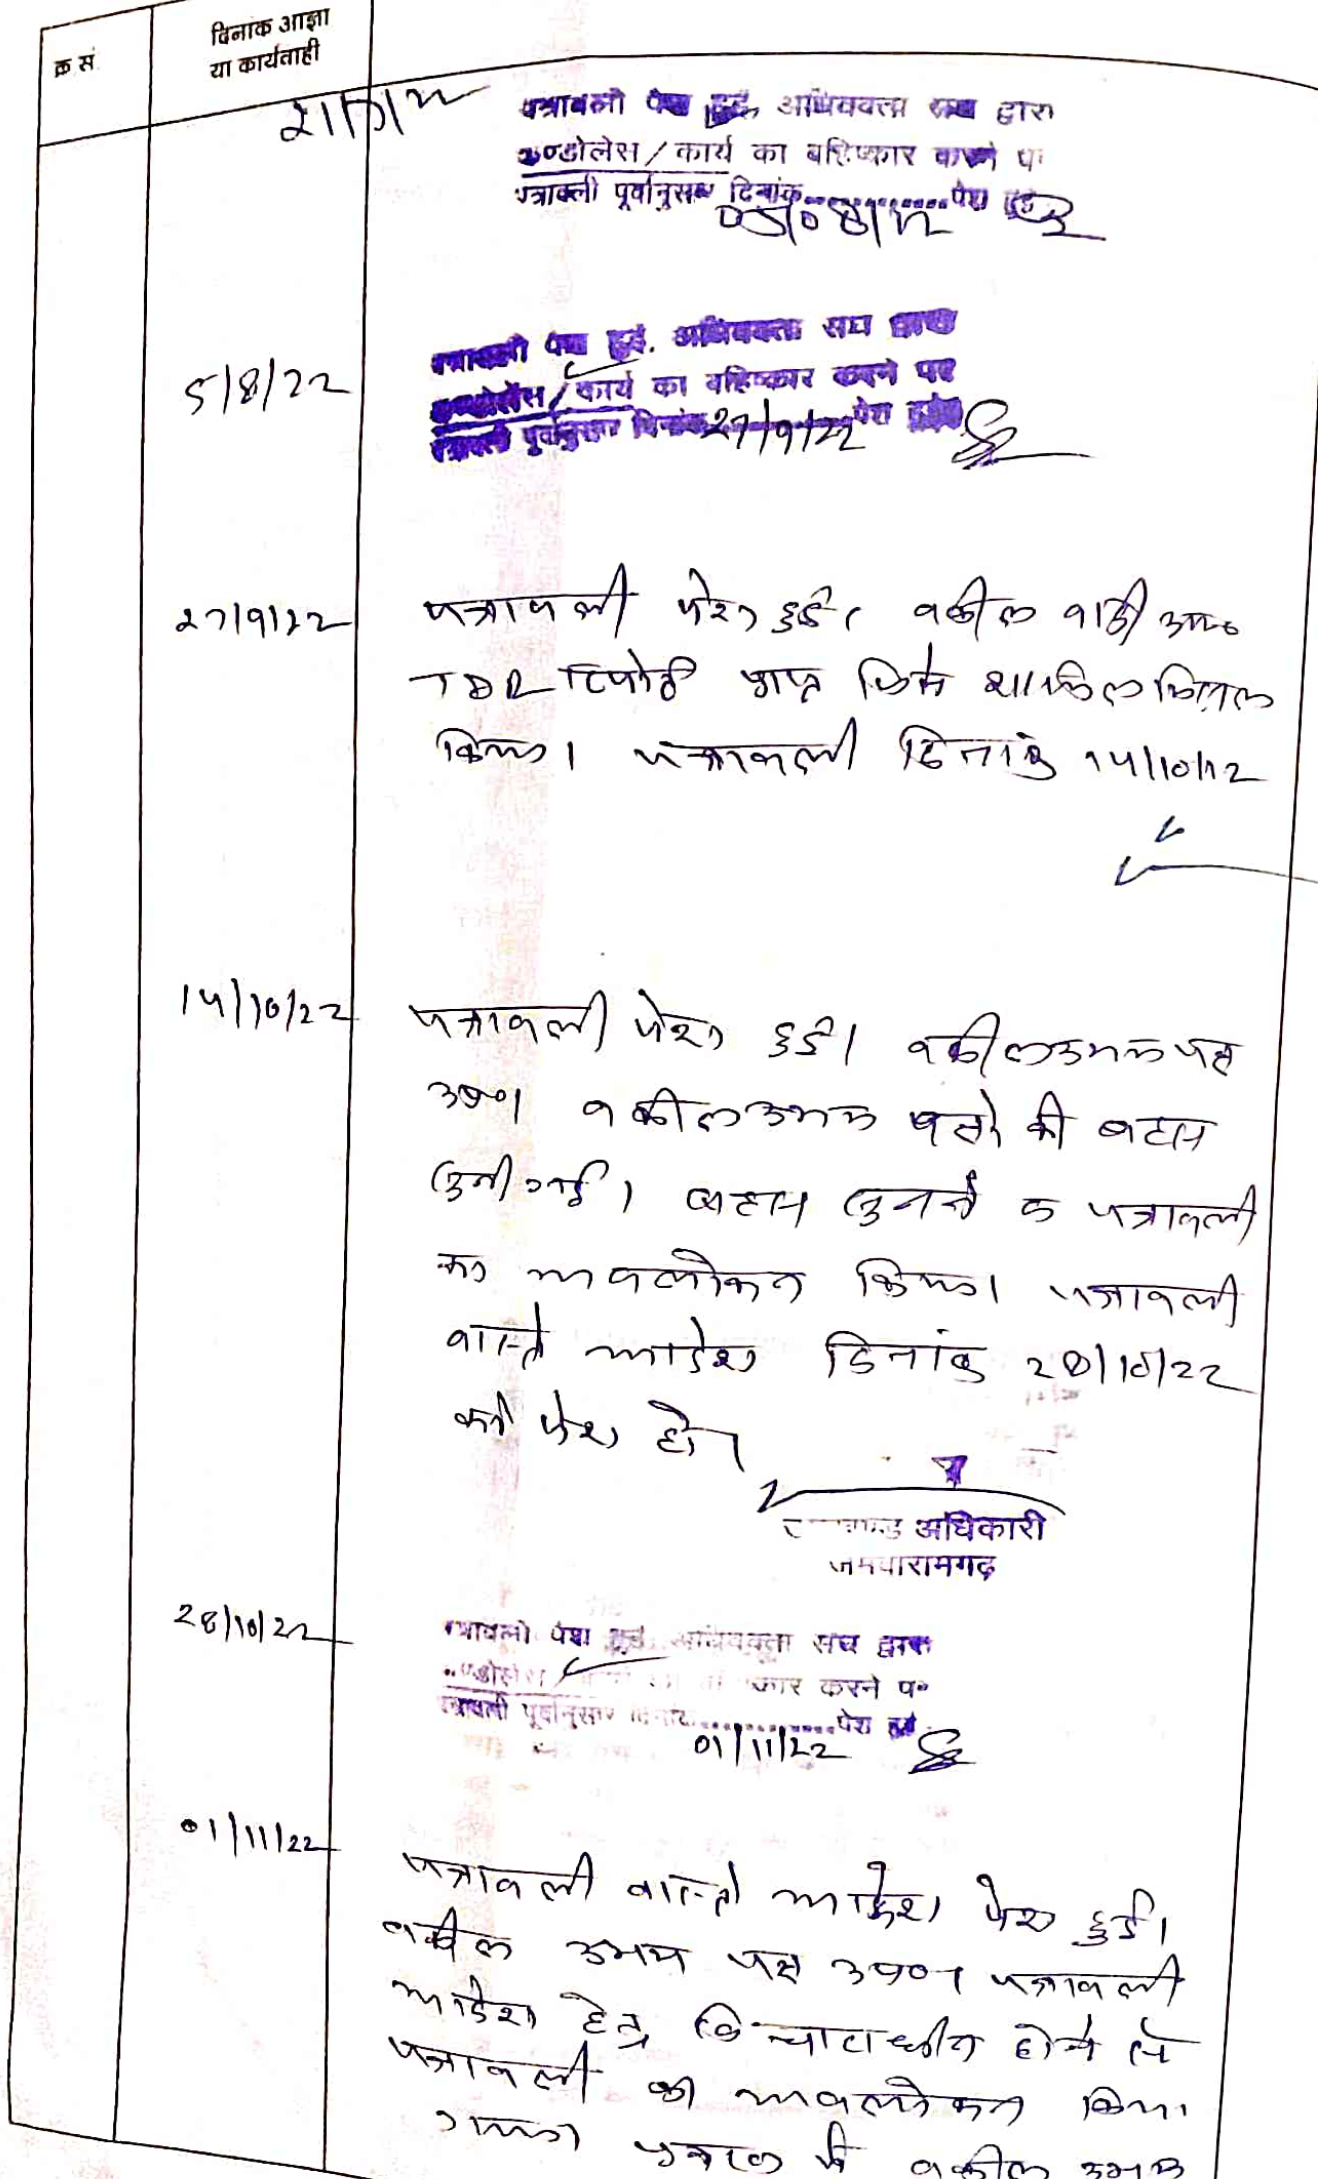 क्र सं
दिनांक आज्ञा
या कार्यवाही
पत्रावली पेश हुई, अभिवक्ता संघ द्वारा
कण्डोलेंस / कार्य का बहिष्कार करने प
पत्रावली पूर्वानुसार दिनांक.............पेश हुई
05/08/22
5/8/22
पत्रावली पेश हुई. अभिवक्ता संघ द्वारा
कण्डोलेंस / कार्य का बहिष्कार करने पर
पत्रावली पूर्वानुसार दिनांक 27/9/22 पेश हुई
27/9/22
पत्रावली पेश हुई। वकील वादी उप०
TDR रिपोर्ट प्राप्त शामिल मिसल
किया। पत्रावली दिनांक 14/10/22
14/10/22
पत्रावली पेश हुई। वकील उभय पक्ष
उप०। वकील उभय पक्षो की बहस
सुनी गई। बहस सुनने व पत्रावली
का अवलोकन किया। पत्रावली
वास्ते आदेश दिनांक 28/10/22
को पेश हो।
अधिकारी
जमवारामगढ़
28/10/22
पत्रावली पेश हुई. अभिवक्ता संघ द्वारा
कण्डोलेंस / कार करने प
पत्रावली पूर्वानुसार दिनांक.............पेश हुई
01/11/22
01/11/22
पत्रावली वास्ते आदेश पेश हुई।
वकील उभय पक्ष उप०। पत्रावली
आदेश हेतु विचाराधीन होने से
पत्रावली का अवलोकन किया
गया। प्रकरण में वकील उभय